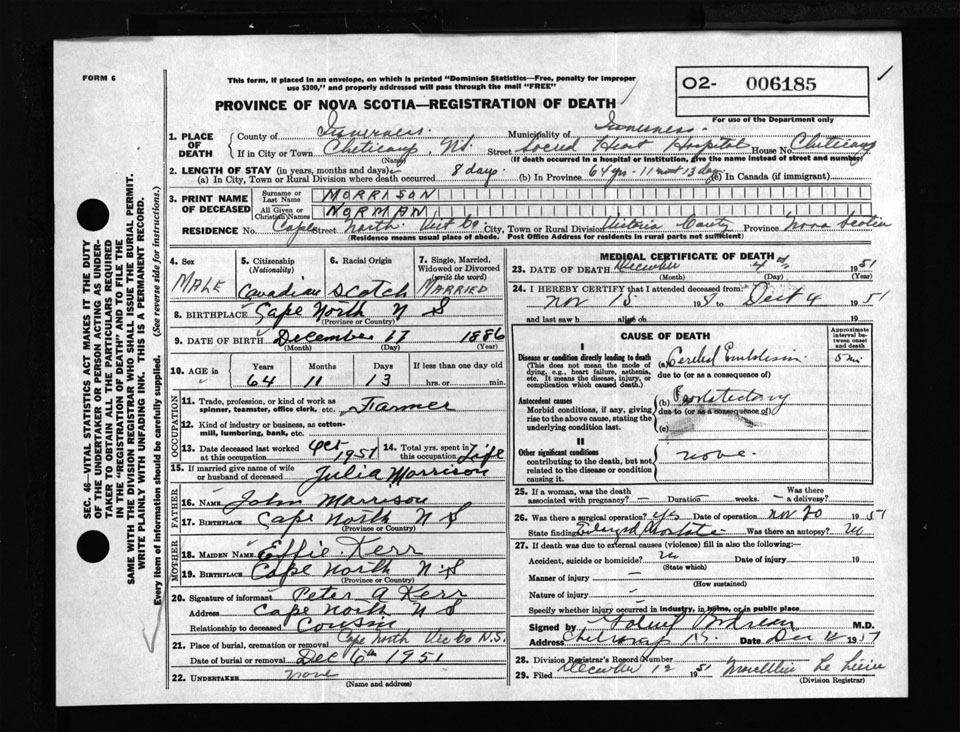 FORM 6
This form, if placed in an envelope, on which is printed "Dominion Statistics—Free, penalty for improper
use $300," and properly addressed will pass through the mail "FREE"
O2- 006185
For use of the Department only
PROVINCE OF NOVA SCOTIA—REGISTRATION OF DEATH
SEC. 46—VITAL STATISTICS ACT MAKES IT THE DUTY
OF THE UNDERTAKER OR PERSON ACTING AS UNDER-
TAKER TO OBTAIN ALL THE PARTICULARS REQUIRED
IN THE "REGISTRATION OF DEATH" AND TO FILE THE
SAME WITH THE DIVISION REGISTRAR WHO SHALL ISSUE THE BURIAL PERMIT.
WRITE PLAINLY WITH UNFADING INK. THIS IS A PERMANENT RECORD.
Every item of information should be carefully supplied. (See reverse side for instructions.)
1. PLACE OF DEATH
County of Inverness. Municipality of Inverness.
If in City or Town Cheticamp, N.S. Street Sacred Heart Hospital House No. Cheticamp
(Name) (If death occurred in a hospital or institution, give the name instead of street and number)
2. LENGTH OF STAY (in years, months and days)
(a) In City, Town or Rural Division where death occurred 8 days. (b) In Province 64 yrs - 11 mont 13 days (c) In Canada (if immigrant)
3. PRINT NAME OF DECEASED
Surname or Last Name MORRISON
All Given or Christian Names NORMAN
RESIDENCE No. Cape Street North. Vict Co City, Town or Rural Division Victoria County Province Nova Scotia
(Residence means usual place of abode. Post Office Address for residents in rural parts not sufficient)
4. Sex MALE
5. Citizenship (Nationality) Canadian
6. Racial Origin Scotch
7. Single, Married, Widowed or Divorced (write the word) MARRIED
8. BIRTHPLACE Cape North N S
(Province or Country)
9. DATE OF BIRTH December 17 1886
(Month) (Day) (Year)
10. AGE in Years Months Days If less than one day old
64 11 13 hrs. or min.
OCCUPATION
11. Trade, profession, or kind of work as
spinner, teamster, office clerk, etc. Farmer
12. Kind of industry or business, as cotton-
mill, lumbering, bank, etc.
13. Date deceased last worked at this occupation Oct 1951 14. Total yrs. spent in this occupation Life
15. If married give name of wife
or husband of deceased Julia Morrison
FATHER
16. NAME John Morrison
17. BIRTHPLACE Cape North N S
(Province or Country)
MOTHER
18. MAIDEN NAME Effie Kerr
19. BIRTHPLACE Cape North N S
(Province or Country)
20. Signature of informant Peter A Kerr
Address Cape North N S
Relationship to deceased Cousin
21. Place of burial, cremation or removal Cape North Vic Co N.S.
Date of burial or removal Dec 6th 1951
22. UNDERTAKER none
(Name and address)
MEDICAL CERTIFICATE OF DEATH
23. DATE OF DEATH December 4 1951
(Month) (Day)
24. I HEREBY CERTIFY that I attended deceased from:
Nov 15 to Dec 4 1951
and last saw h alive on 19
CAUSE OF DEATH
Approximate interval between onset and death
I
Disease or condition directly leading to death
(This does not mean the mode of
dying, e.g., heart failure, asthenia,
etc. It means the disease, injury, or
complication which caused death.)
(a) Cerebral Embolism 5 min
due to (or as a consequence of)
Antecedent causes
Morbid conditions, if any, giving
rise to the above cause, stating the
underlying condition last.
(b) Prostatectomy
due to (or as a consequence of)
(c)
II
Other significant conditions
contributing to the death, but not
related to the disease or condition
causing it.
none.
25. If a woman, was the death
associated with pregnancy? — Duration weeks. Was there a delivery?
26. Was there a surgical operation? yes Date of operation Nov 20 1951
State finding Enlarged Prostate Was there an autopsy? no
27. If death was due to external causes (violence) fill in also the following:
Accident, suicide or homicide? no Date of injury
(State which)
Manner of injury
(How sustained)
Nature of injury
Specify whether injury occurred in industry, in home, or in public place
Signed by M.D.
Address Cheticamp Date Dec 12 1951
28. Division Registrar's Record Number
29. Filed December 12 1951
(Division Registrar)